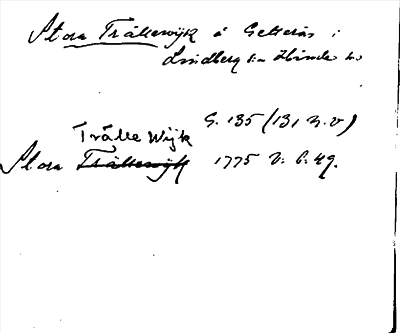 Stora Trällewijk å Getterön i
Lindberg sn Himle hd.
G. 135 (131 n.v)
Trälle Wijk
Stora Trällewijk 1775 v. b. 49.